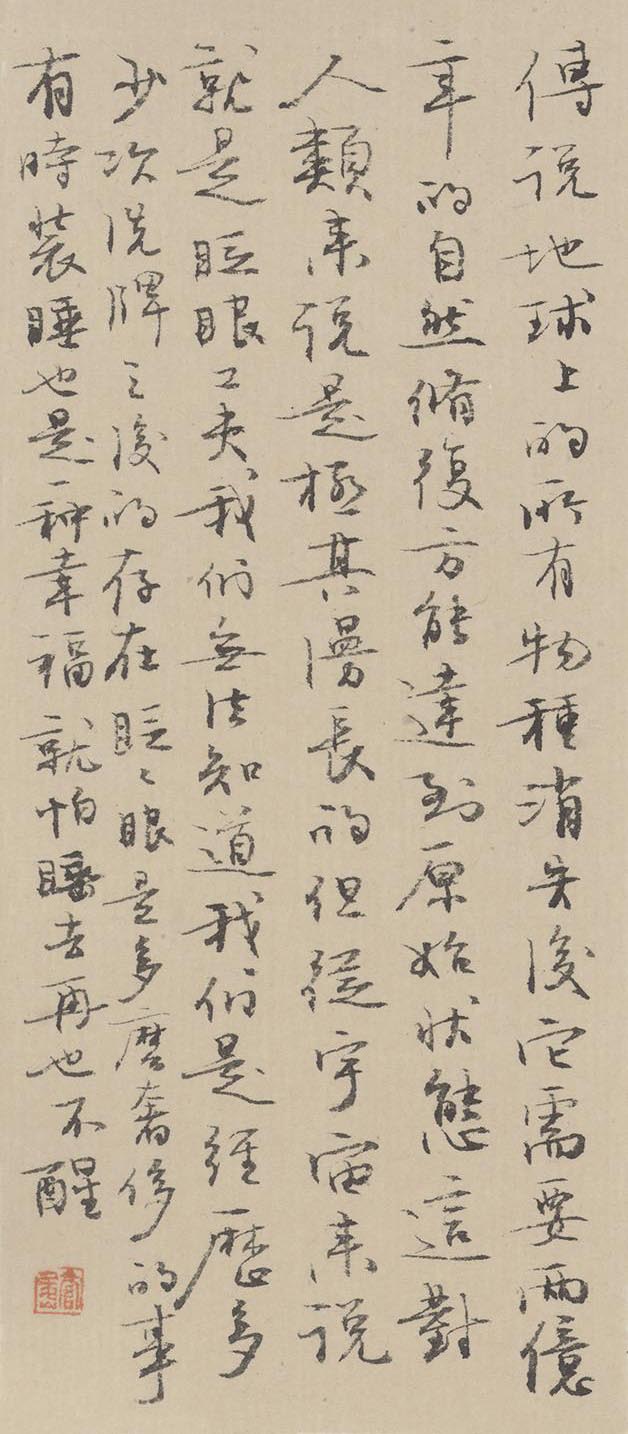 傳説地球上的所有物種消失後它需要兩億
年的自然脩復方能達到原始狀態這對
人類来説是極其漫長的但從宇宙来説
就是眨眼工夫我们無法知道我们是經歷多
少次洗牌之後的存在眨々眼是多麽奢侈的事
有時裝睡也是一种幸福就怕睡去再也不醒